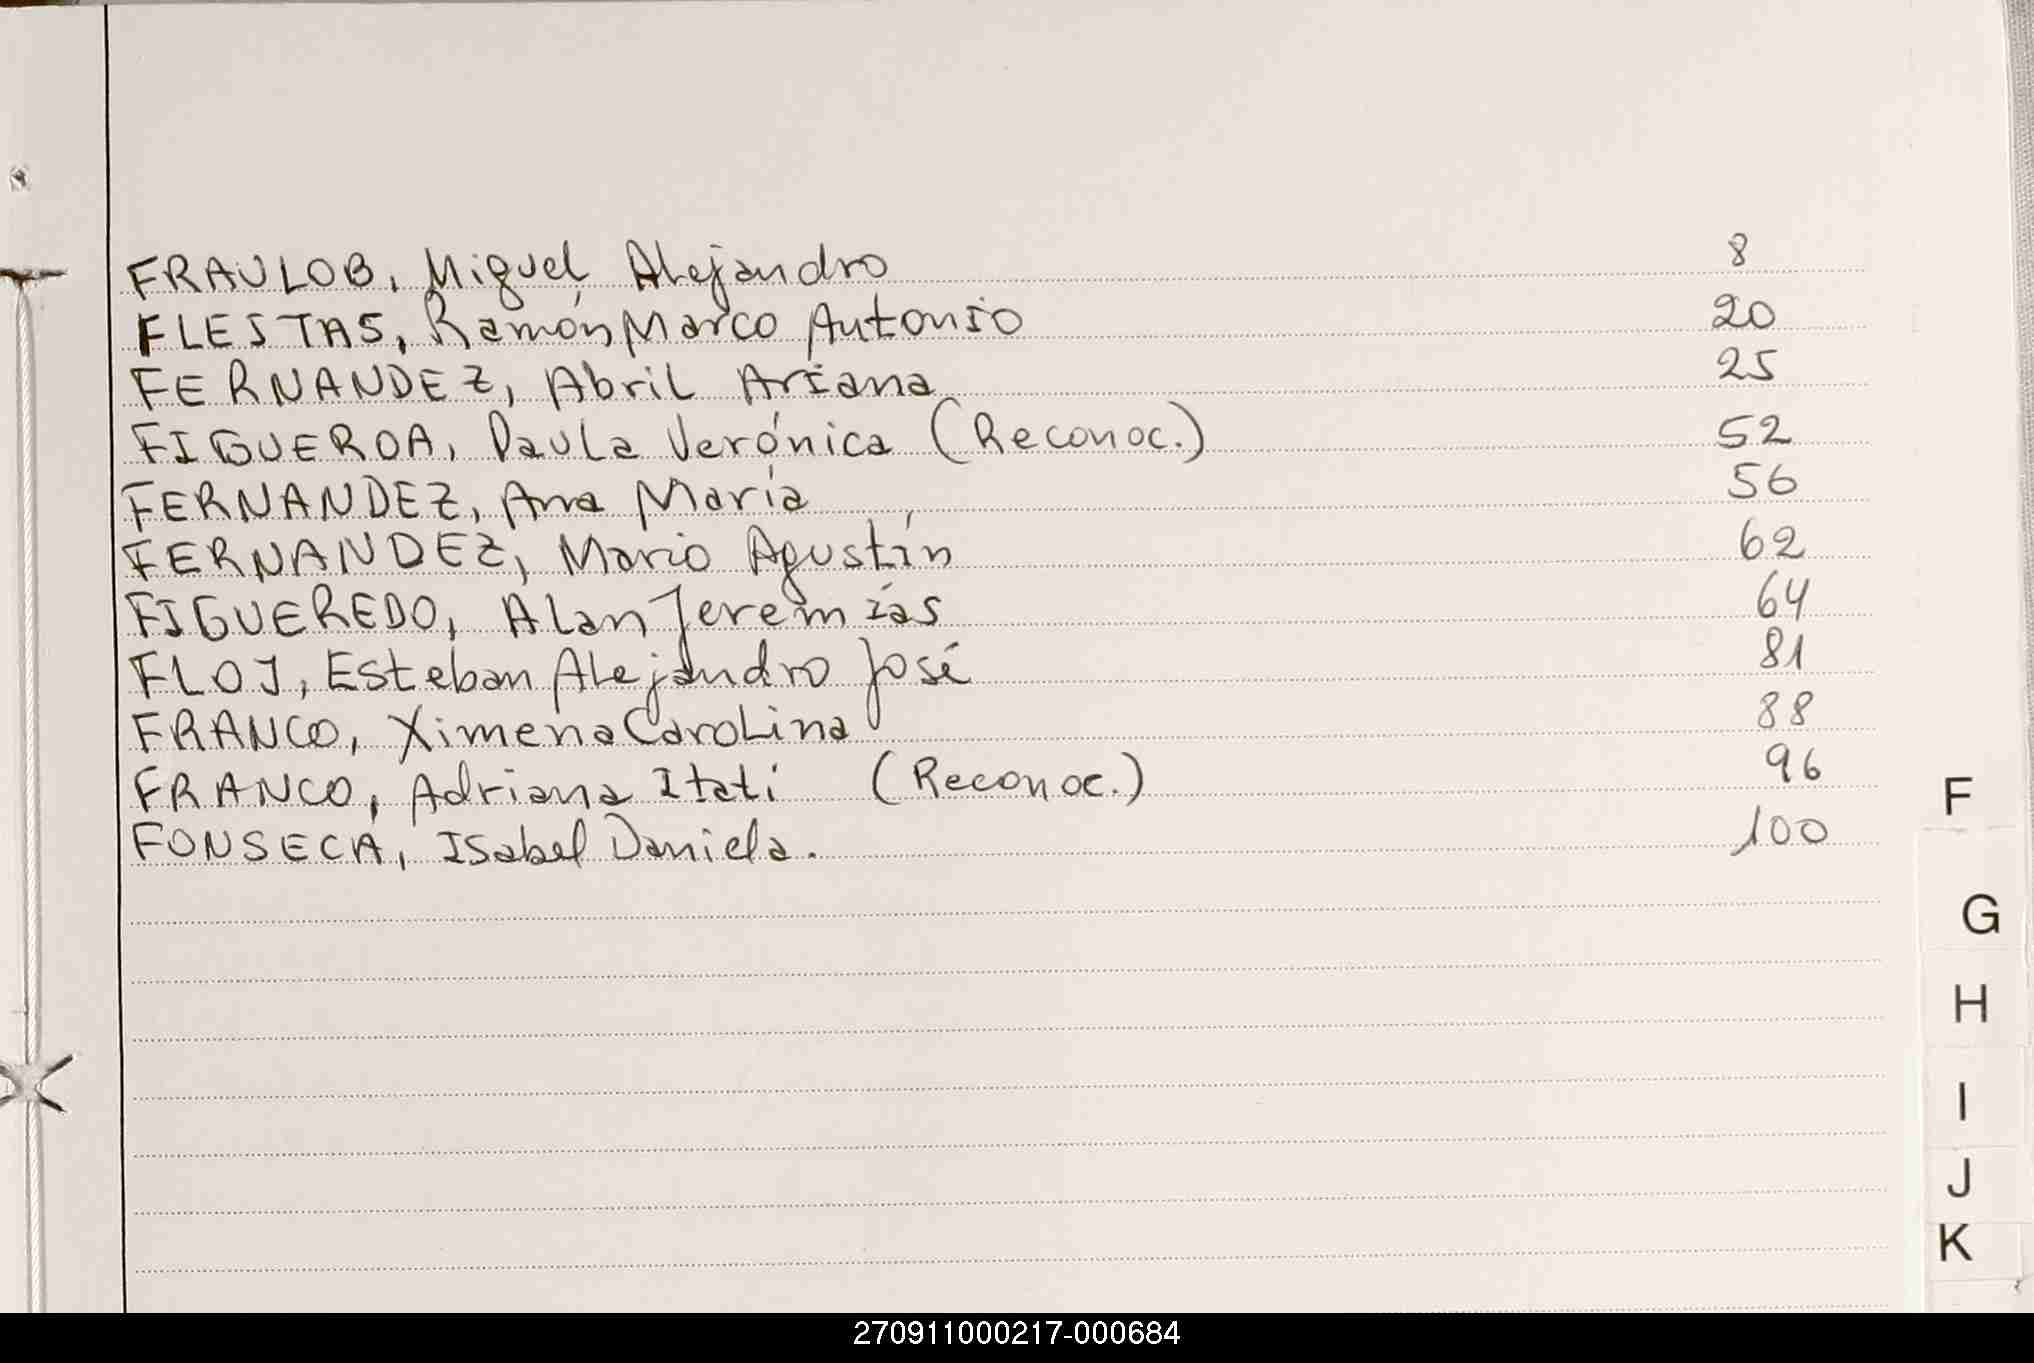 FRAULOB, Miguel Alejandro 8
FLESTAS, Ramón Marco Antonio 20
FERNANDEZ, Abril Ariana 25
FIGUEROA, Paula Verónica (Reconoc.) 52
FERNANDEZ, Ana María 56
FERNANDEZ, Mario Agustín 62
FIGUEREDO, Alan Jeremías 64
FLOJ, Esteban Alejandro José 81
FRANCO, Ximena Carolina 88
FRANCO, Adriana Itatí (Reconoc.) 96
FONSECA, Isabel Daniela. 100
F
G
H
I
J
K
270911000217-000684